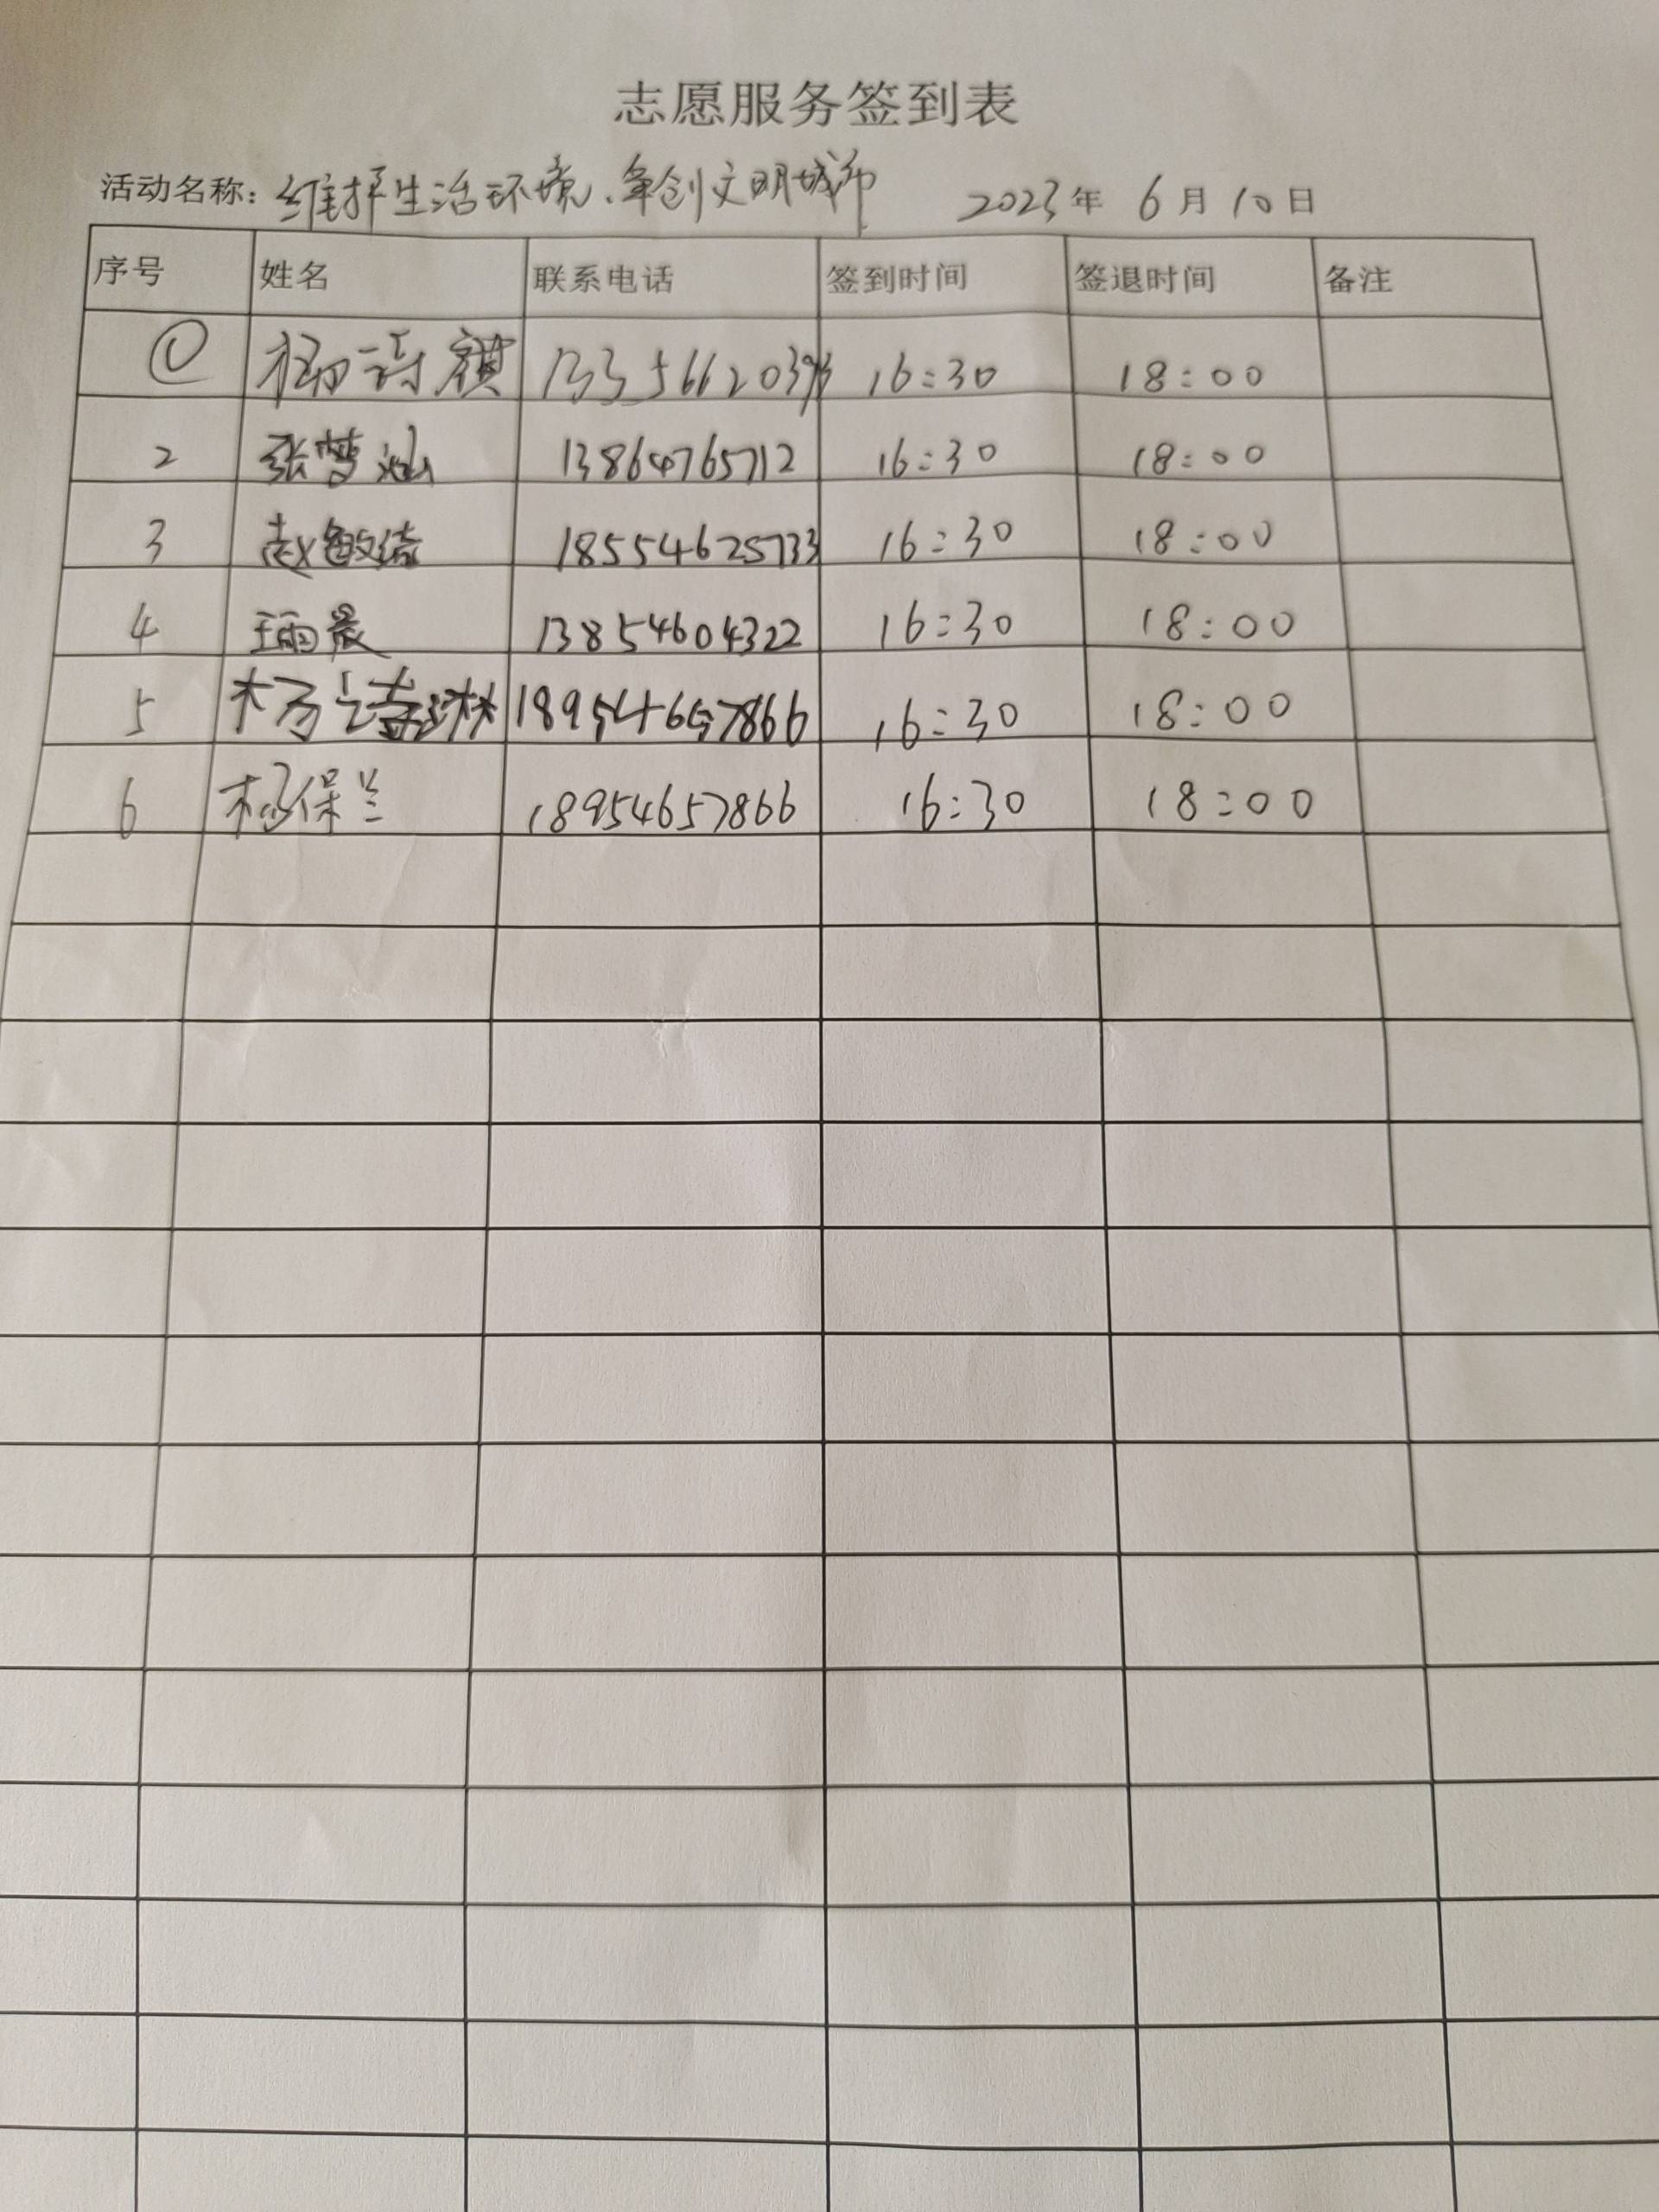 志愿服务签到表
活动名称：维护生活环境、争创文明城市 2023年 6月10日
序号 姓名 联系电话 签到时间 签退时间 备注
① 杨诗祺 16:30 18:00
2 张梦涵 13864765712 16:30 18:00
3 赵敏 18554625733 16:30 18:00
4 王雨晨 13854604322 16:30 18:00
5 杨诗琳 18954657866 16:30 18:00
6 杨保兰 18954657866 16:30 18:00